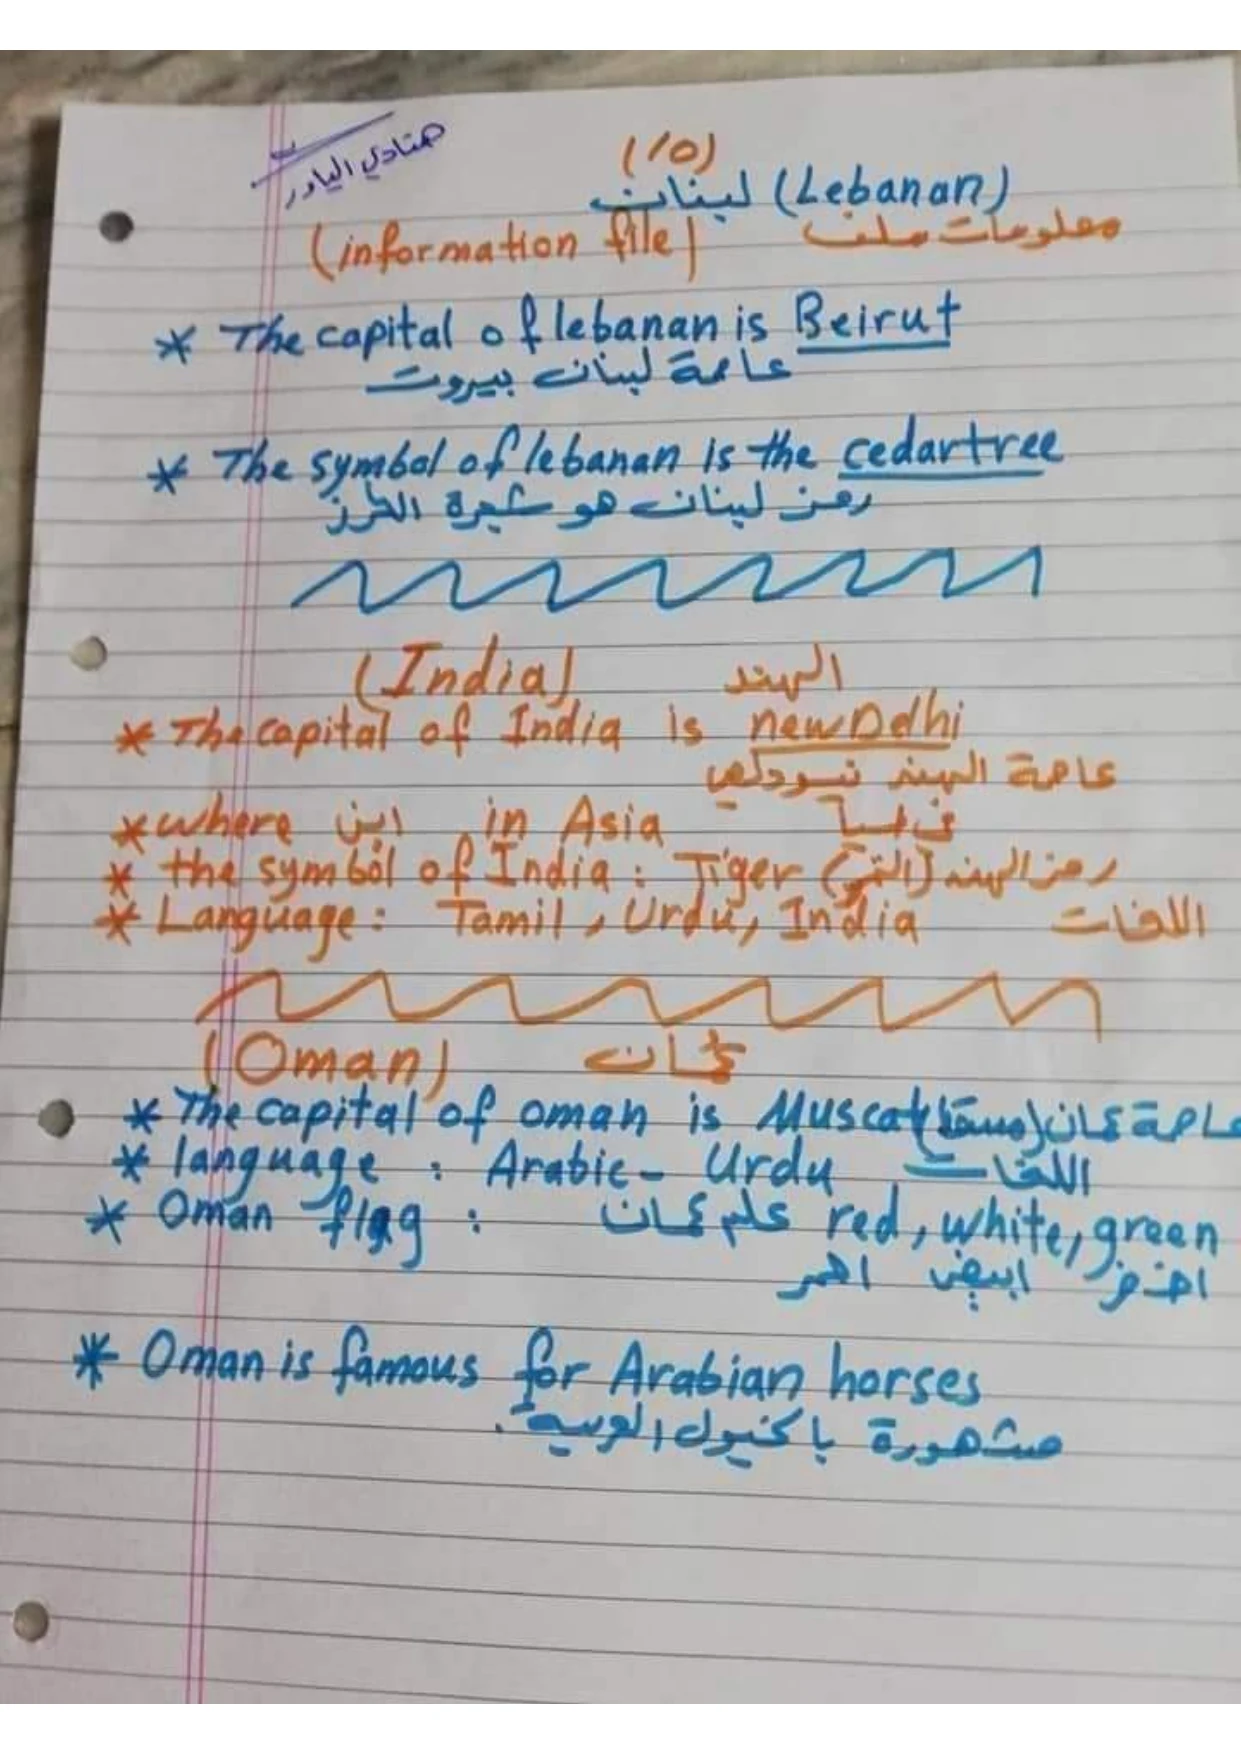 هنادي الياور
(١٥)
لبنان (Lebanan)
(information file) معلومات ملف
* The capital of lebanan is Beirut
عاصمة لبنان بيروت
* The symbol of lebanan is the cedartree
رمز لبنان هو شجرة الطرز
(India) الهند
* The capital of India is newDelhi
عاصمة الهند نيودلهي
* where اين in Asia في اسيا
* the symbol of India : Tiger رمز الهند
* Language : Tamil, Urdu, India اللغات
(Oman) عمان
* The capital of oman is Muscat عاصمة عمان (مسقط)
* language : Arabic - Urdu اللغات
* Oman flag : علم عمان red, white, green
اخضر ابيض احمر
* Oman is famous for Arabian horses
مشهورة بالخيول العربية.